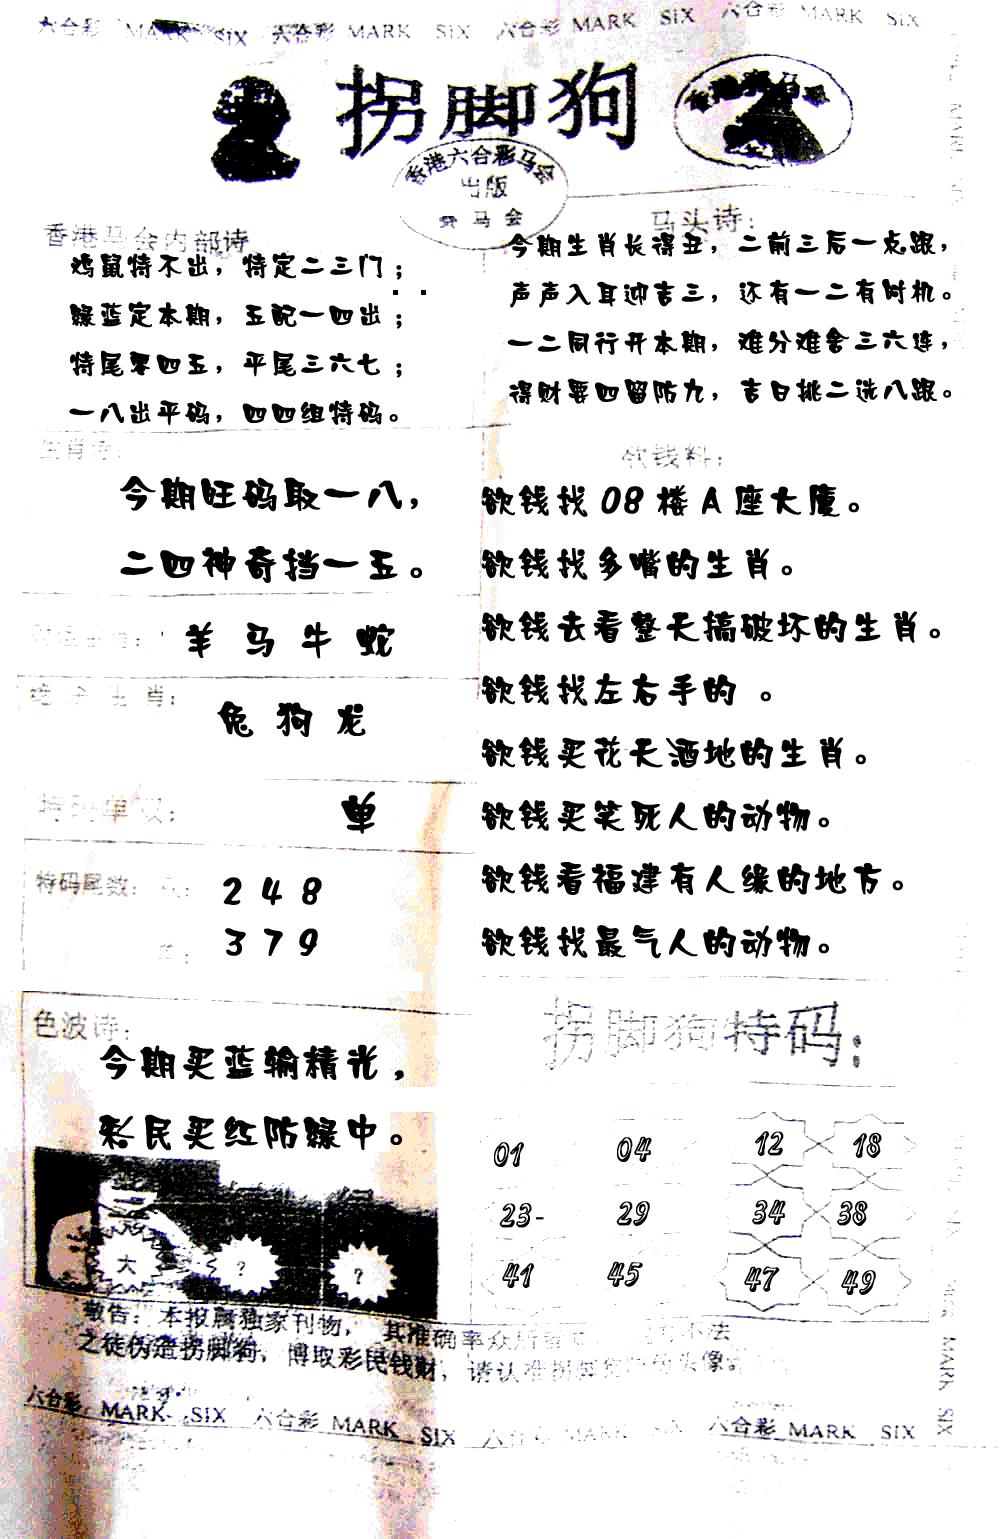 六合彩 MARK SIX 六合彩 MARK SIX 六合彩 MARK SIX 六合彩 MARK SIX
拐脚狗
香港六合彩马会
出版
马会
香港马会内部诗
鸡鼠特不出，特定二三门；
绿蓝定本期，五配一四出；
特尾零四五，平尾三六七；
一八出平码，四四组特码。
马头诗：
今期生肖长得丑，二前三后一点跟，
声声入耳迎吉三，还有一二有时机。
一二同行开本期，难分难舍三六连，
得财要四留防九，吉日挑二选八跟。
生肖诗：
今期旺码取一八，
二四神奇挡一五。
羊 马 牛 蛇
生肖：
兔 狗 龙
特码单双：
单
特码尾数：
2 4 8
3 7 9
欲钱料：
欲钱找 08 楼 A 座大厦。
欲钱找多嘴的生肖。
欲钱去看整天搞破坏的生肖。
欲钱找左右手的 。
欲钱买花天酒地的生肖。
欲钱买笑死人的动物。
欲钱看福建有人缘的地方。
欲钱找最气人的动物。
色波诗：
今期买蓝输精光，
彩民买红防绿中。
大 ？ ？
拐脚狗特码：
01 04 12 18
23- 29 34 38
41 45 47 49
敬告：本报属独家刊物，其准确率众所 不法
之徒伪造拐脚狗，博取彩民钱财，请认准拐脚狗 头像。
六合彩 MARK SIX 六合彩 MARK SIX 六合彩 MARK SIX 六合彩 MARK SIX
MARK SIX